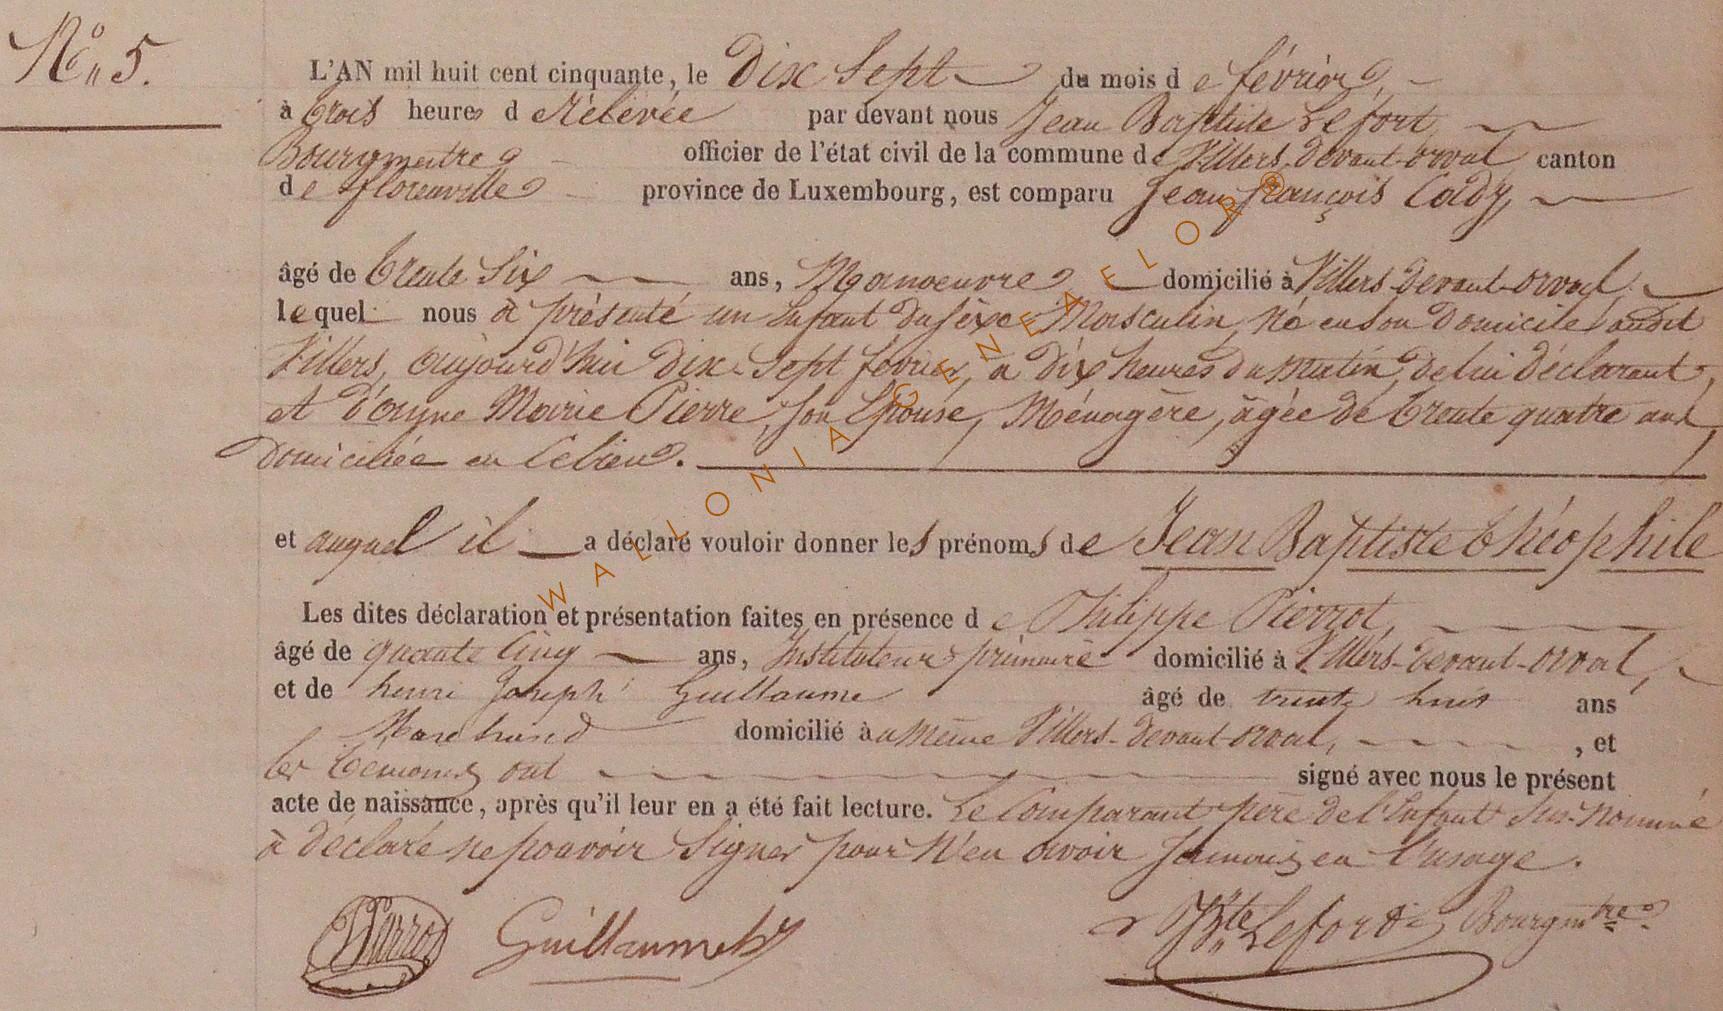 N° 5.
L'AN mil huit cent cinquante, le Dix Sept du mois de février,
à trois heures d Rélévée par devant nous Jean Baptiste Lefort,
Bourgmestre officier de l'état civil de la commune de Villers-devant-orval canton
de florenville province de Luxembourg, est comparu Jean françois Cady,
âgé de trente Six ans, Manoeuvre domicilié à Villers-devant-orval,
lequel nous à présenté un Enfant du sèxe Masculin, né en son Domicile audit
Villers, aujourd'hui dix-Sept février, à dix heures du matin, de lui déclarant,
et d'anne Marie Pierre, son Epouse, Ménagère, âgée de trente quatre ans,
Domiciliée en Celieu.
et auquel il a déclaré vouloir donner les prénoms de Jean Baptiste théophile
Les dites déclaration et présentation faites en présence de Philippe Pierrot,
âgé de quante Cinq ans, Instituteur primaire domicilié à Villers-devant-orval,
et de henri Joseph Guillaume âgé de trente huit ans
Marchand domicilié au Même Villers-devant-orval, , et
les témoins ont signé avec nous le présent
acte de naissance, après qu'il leur en a été fait lecture. Le Comparant père de l'Enfant Sus-nommé
à déclaré ne pouvoir Signer pour N'en avoir jamais eu l'usage.
Pierrot Guillaume hj JBte Lefort Bourgmtre
WALLONIA GENEALOR ®